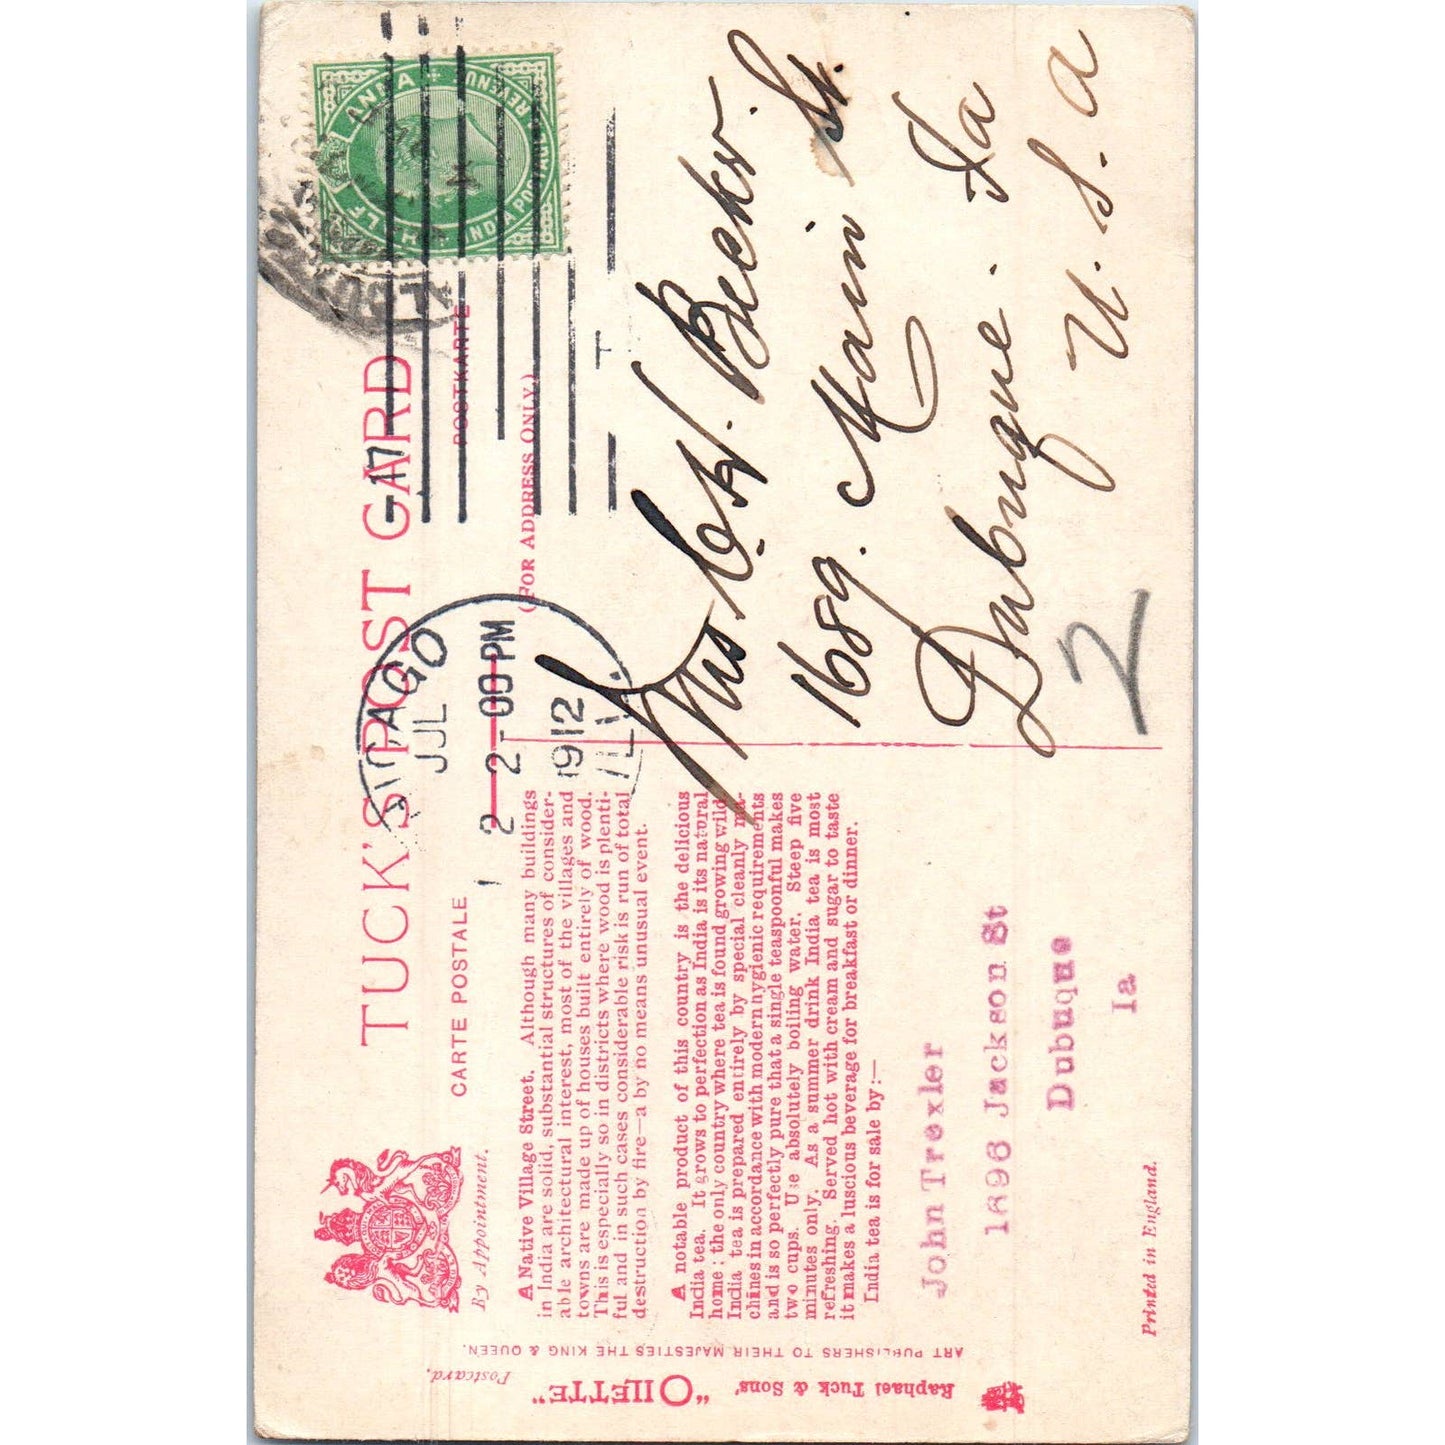 TUCK'S POST CARD
CARTE POSTALE
POSTKARTE
(FOR ADDRESS ONLY.)
By Appointment.
INDIA POSTAGE & REVENUE
HALF ANNA
CHICAGO
JUL
2 2-00 PM
1912
ILL.
A Native Village Street. Although many buildings
in India are solid, substantial structures of consider-
able architectural interest, most of the villages and
towns are made up of houses built entirely of wood.
This is especially so in districts where wood is plenti-
ful and in such cases considerable risk is run of total
destruction by fire—a by no means unusual event.
A notable product of this country is the delicious
India tea. It grows to perfection as India is its natural
home; the only country where tea is found growing wild
India tea is prepared entirely by special cleanly ma-
chines in accordance with modern hygienic requirements
and is so perfectly pure that a single teaspoonful makes
two cups. Use absolutely boiling water. Steep five
minutes only. As a summer drink India tea is most
refreshing. Served hot with cream and sugar to taste
it makes a luscious beverage for breakfast or dinner.
India tea is for sale by:—
John Trexler
1696 Jackson St
Dubuque
Ia
Mrs C. H. Beckw.
1689. Main St.
Dubuque. Ia
U. S. A
2
Raphael Tuck & Sons'
"OILETTE"
Postcard.
ART PUBLISHERS TO THEIR MAJESTIES THE KING & QUEEN.
Printed in England.